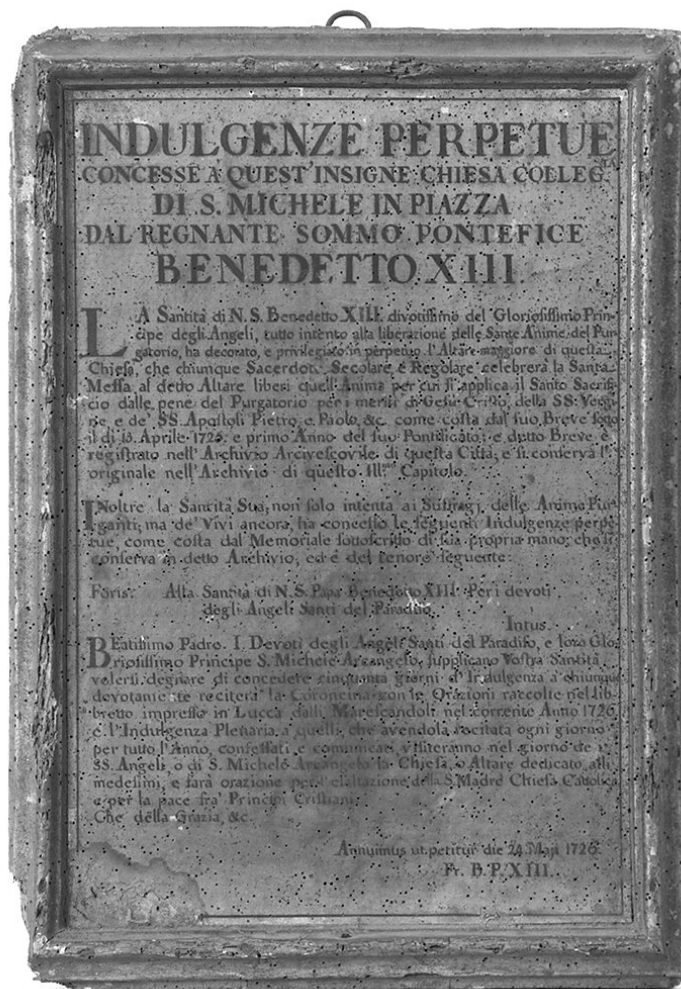 INDULGENZE PERPETUE
CONCESSE A' QUEST'INSIGNE CHIESA COLLEG.TA
DI S. MICHELE IN PIAZZA
DAL REGNANTE SOMMO PONTEFICE
BENEDETTO XIII.
LA Santità di N. S. Benedetto XIII. divotissimo del Gloriosissimo Prin-
cipe degli Angeli, tutto intento alla liberazione delle Sante Anime del Pur-
gatorio, ha decorato, e privilegiato in perpetuo l'Altare maggiore di questa
Chiesa, che chiunque Sacerdote Secolare, e Regolare celebrerà la Santa
Messa al detto Altare liberi quell'Anima per cui si applica il Santo Sacrifi-
cio dalle pene del Purgatorio per i meriti di Gesù Cristo, della SS. Vergi-
ne, e de' SS. Apostoli Pietro, e Paolo, &c. come costa dal suo Breve sotto
il dì 13. Aprile 1725. e primo Anno del suo Pontificato; e detto Breve è
registrato nell'Archivio Arcivescovile di questa Città, e si conserva l'
originale nell'Archivio di questo Ill.mo Capitolo.
INoltre la Santità Sua, non solo intenta ai Suffragj delle Anime Pur-
ganti, ma de' Vivi ancora, ha concesso le seguenti Indulgenze perpe-
tue, come costa dal Memoriale sottoscritto di sua propria mano, che si
conserva in detto Archivio, ed è del tenore seguente:
Foris. Alla Santità di N. S. Papa Benedetto XIII. Per i devoti
degli Angeli Santi del Paradiso.
Intus.
BEatissimo Padre. I Devoti degli Angeli Santi del Paradiso, e loro Glo-
riosissimo Principe S. Michele Arcangelo, supplicano Vostra Santità
volersi degnare di concedere cinquanta giorni d'Indulgenza a' chiunque
devotamente reciterà la Coroncina con le Orazioni raccolte nel Lib-
bretto impresso in Lucca dalli Marescandoli nel corrente Anno 1726.
e l'Indulgenza Plenaria a' quelli, che avendola recitata ogni giorno
per tutto l'Anno, confessati e comunicati visiteranno nel giorno de i
SS. Angeli, o di S. Michele Arcangelo la Chiesa, o Altare dedicato alli
medesimi, e farà orazione per l'esaltazione della S. Madre Chiesa Cattolica
e per la pace fra' Principi Cristiani.
Che della Grazia, &c.
Annuimus ut petitur die 24. Maji 1726.
Fr. B. P. XIII.